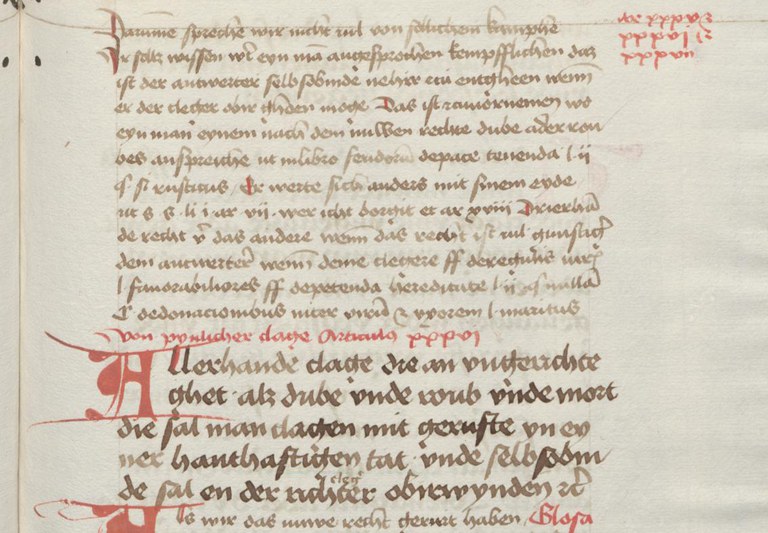 Darume spreche wir nicht vil von sulchem kamphe
Ir solt wissen wer eyn man angesprochen kempfflichen daz
ist der antwerter selbsobinde nehir czu entgheen wenn
er der cleger obir ghoen moge Das ist czuuornemen wo
eyn man eynem nach dem milwen rechte dube ader rou
bes anspreiche ut in libro feudorum de pace tenenda l ij
§ si rusticus Er werte sich anders mit sinem eyde
ut s s li i ar vij wer icht borgit et ar xviij Drierhan
de recht v das andere wenn das recht ist vil gunstig
dem antwerter wenn deme clegere ff de regulis iuris
l fauorabiliores ff de petenda hereditate l ij § nulla
C de donacionibus inter virum et vxorem l maritus
von pynlicher clage Articulus xxxvi
Allerhande clage die an vngerichte
ghet alz dube vnde roub vnde mort
die sal man clagen mit gerufte vn ey
ner hanthaftigen tat vnde selbsobin
cleg
de sal en der richter obirwynden etc
Als wir das nuwe recht gerurt haben Glosa
xxxvj
xxxvij